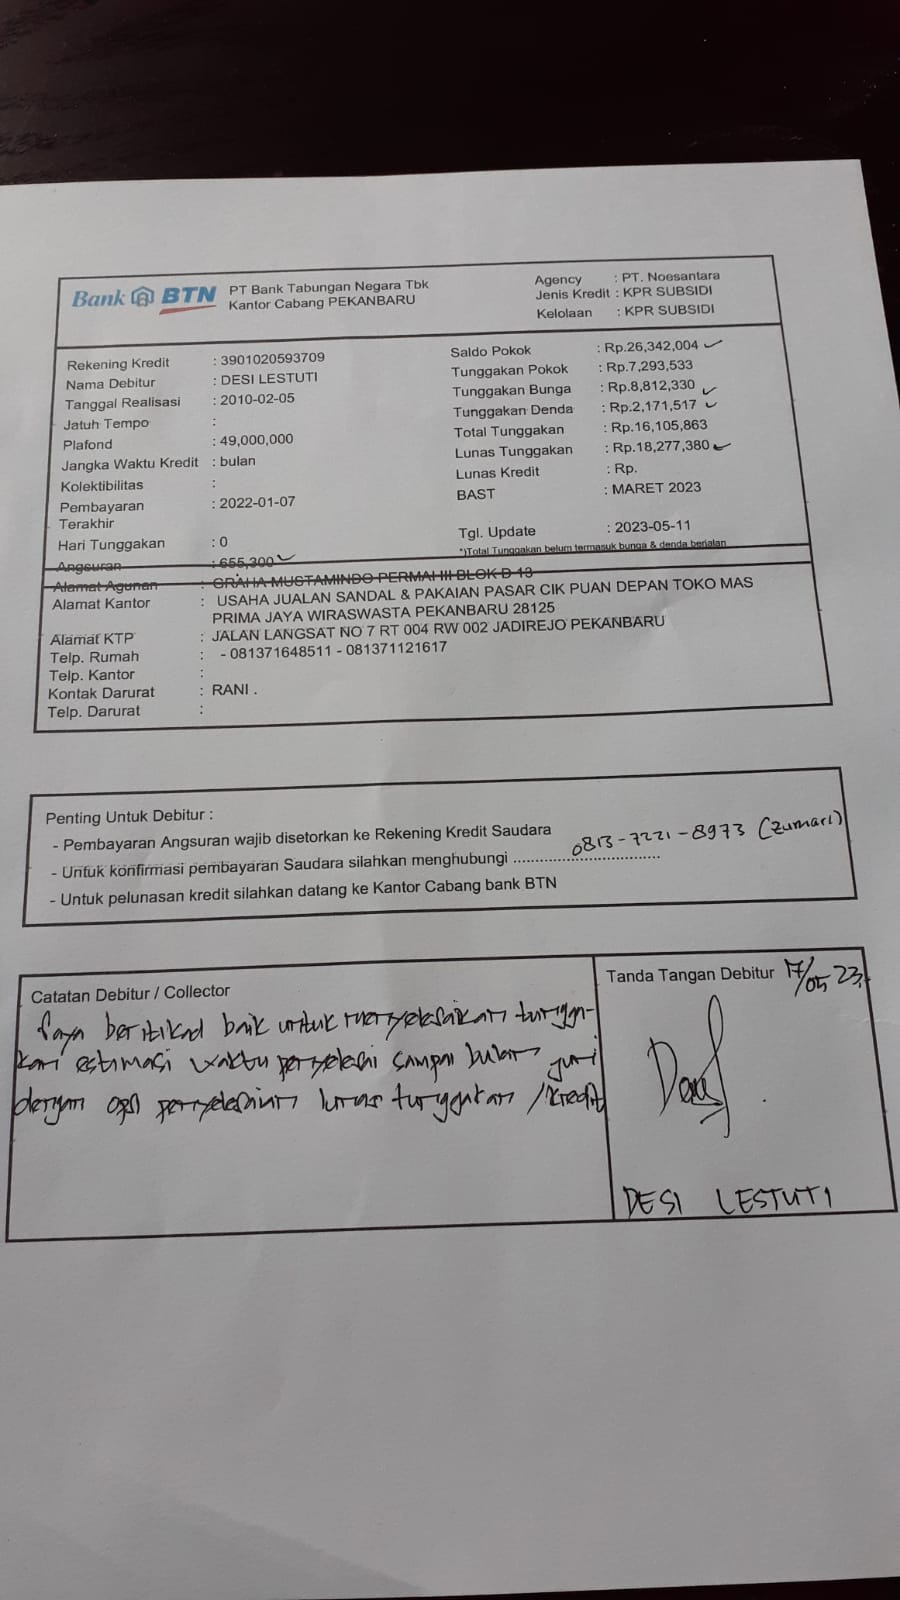 Bank BTN PT Bank Tabungan Negara Tbk
Kantor Cabang PEKANBARU
Agency : PT. Noesantara
Jenis Kredit : KPR SUBSIDI
Kelolaan : KPR SUBSIDI
Rekening Kredit : 3901020593709
Nama Debitur : DESI LESTUTI
Tanggal Realisasi : 2010-02-05
Jatuh Tempo :
Plafond : 49,000,000
Jangka Waktu Kredit : bulan
Kolektibilitas :
Pembayaran : 2022-01-07
Terakhir
Hari Tunggakan : 0
Angsuran : 655,300
Saldo Pokok : Rp.26,342,004
Tunggakan Pokok : Rp.7,293,533
Tunggakan Bunga : Rp.8,812,330
Tunggakan Denda : Rp.2,171,517
Total Tunggakan : Rp.16,105,863
Lunas Tunggakan : Rp.18,277,380
Lunas Kredit : Rp.
BAST : MARET 2023
Tgl. Update : 2023-05-11
*)Total Tunggakan belum termasuk bunga & denda berjalan
Alamat Agunan : GRAHA MUSTAMINDO PERMAI III BLOK D 13
Alamat Kantor : USAHA JUALAN SANDAL & PAKAIAN PASAR CIK PUAN DEPAN TOKO MAS
PRIMA JAYA WIRASWASTA PEKANBARU 28125
Alamat KTP : JALAN LANGSAT NO 7 RT 004 RW 002 JADIREJO PEKANBARU
Telp. Rumah : - 081371648511 - 081371121617
Telp. Kantor :
Kontak Darurat : RANI .
Telp. Darurat :
Penting Untuk Debitur :
- Pembayaran Angsuran wajib disetorkan ke Rekening Kredit Saudara
- Untuk konfirmasi pembayaran Saudara silahkan menghubungi .................................. 0813-7221-8973 (Zumari)
- Untuk pelunasan kredit silahkan datang ke Kantor Cabang bank BTN
Catatan Debitur / Collector
Saya beritikad baik untuk menyelesaikan tungga-
kan estimasi waktu penyelesai sampai bulan juni
dengan opsi penyelesaian lunas tunggakan /kredit
Tanda Tangan Debitur 17/05 23
DESI LESTUTI